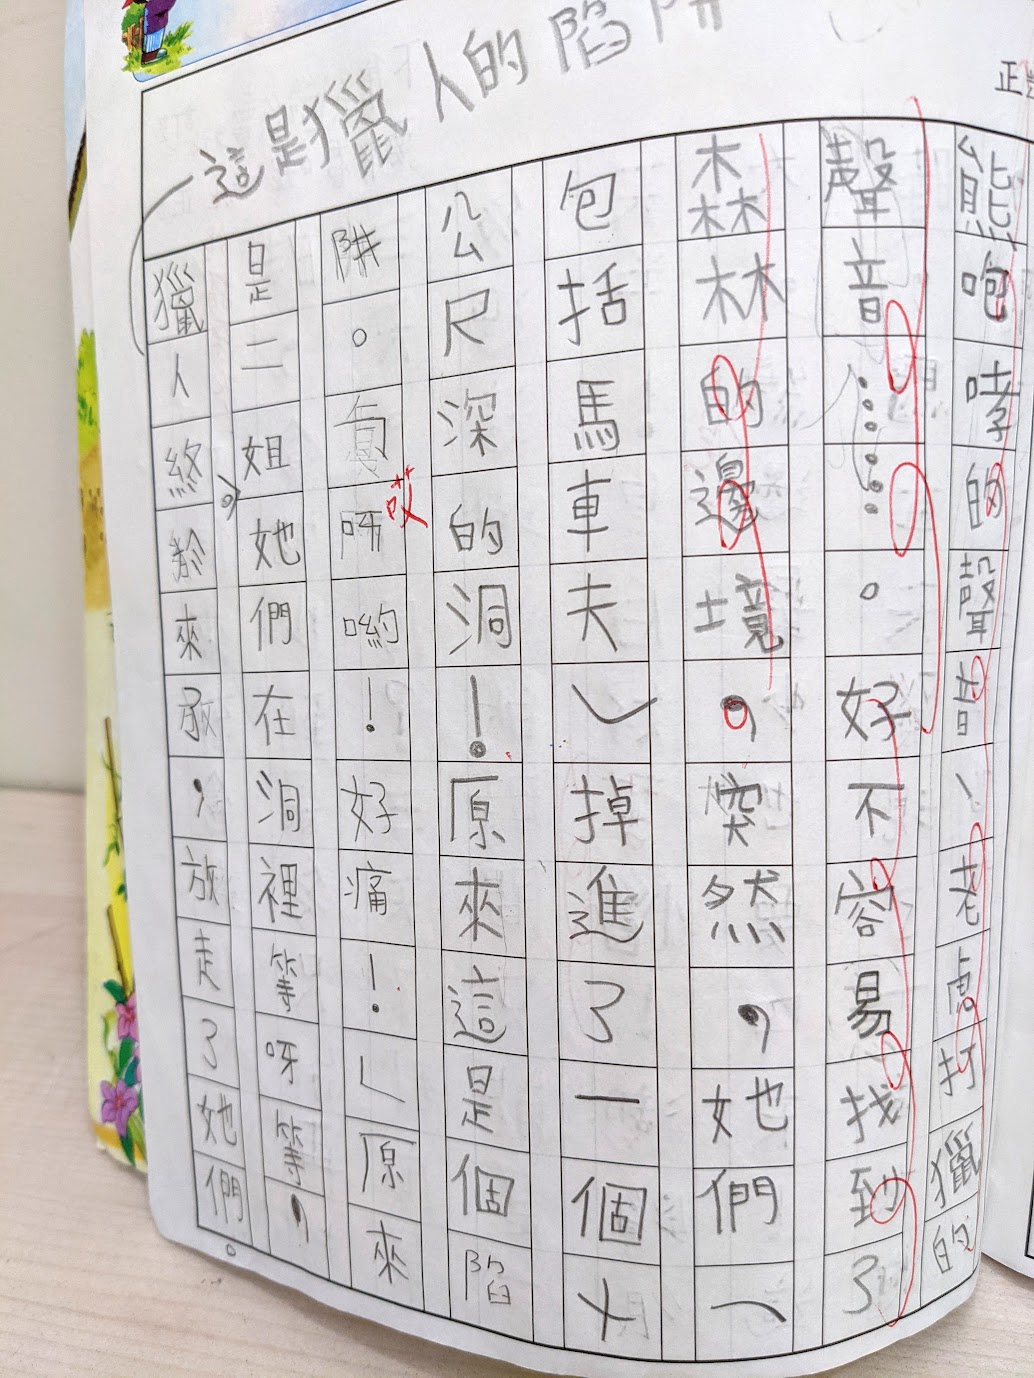 這是獵人的陷阱
熊咆哮的聲音、老虎打獵的
聲音……。好不容易找到了
森林的邊境，突然，她們（
包括馬車夫）掉進了一個十
公尺深的洞！原來這是個陷
阱。呀喲！好痛！」原來
哎
是二姐她們在洞裡等呀等，
獵人終來，放走了她們。